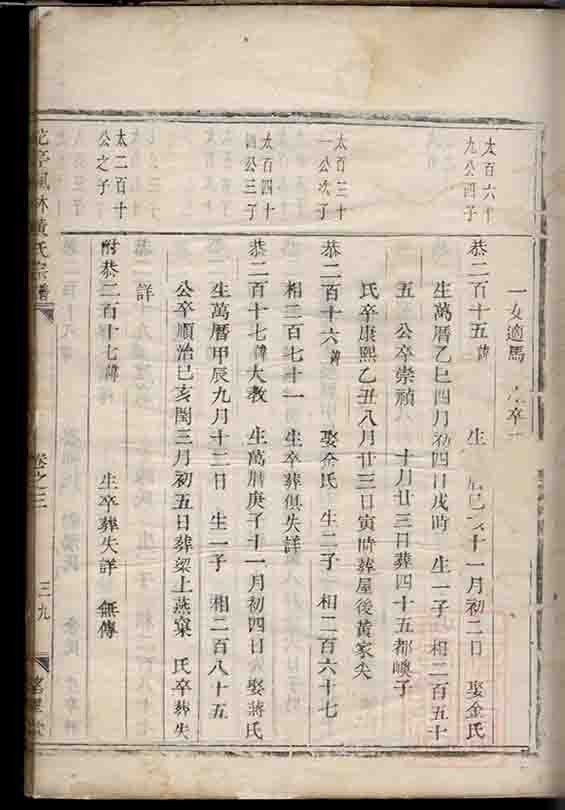 一女適馬
太百六十
九公四子
恭二百十五諱 生 巳 十一月初二日 娶金氏
生萬曆乙巳四月初四日戌時 生一子 相二百五十
五 公卒崇禎 十月廿三日葬四十五都嶼子
氏卒康熙乙丑八月廿三日寅時葬屋後黃家尖
太百三十
一公次子
恭二百十六諱 娶金氏 生二子 相二百六十七
相二百七十一 生卒葬俱失詳
太百四十
四公三子
恭二百十七諱大教 生萬曆庚子十一月初四日 娶蔣氏
生萬曆甲辰九月十二日 生一子 相二百八十五
公卒順治己亥閏三月初五日葬梁上燕窠 氏卒葬失
詳
太二百十
公之子
附恭二百十七諱 生卒葬失詳 無傳
黃氏宗譜
卷之三
三九